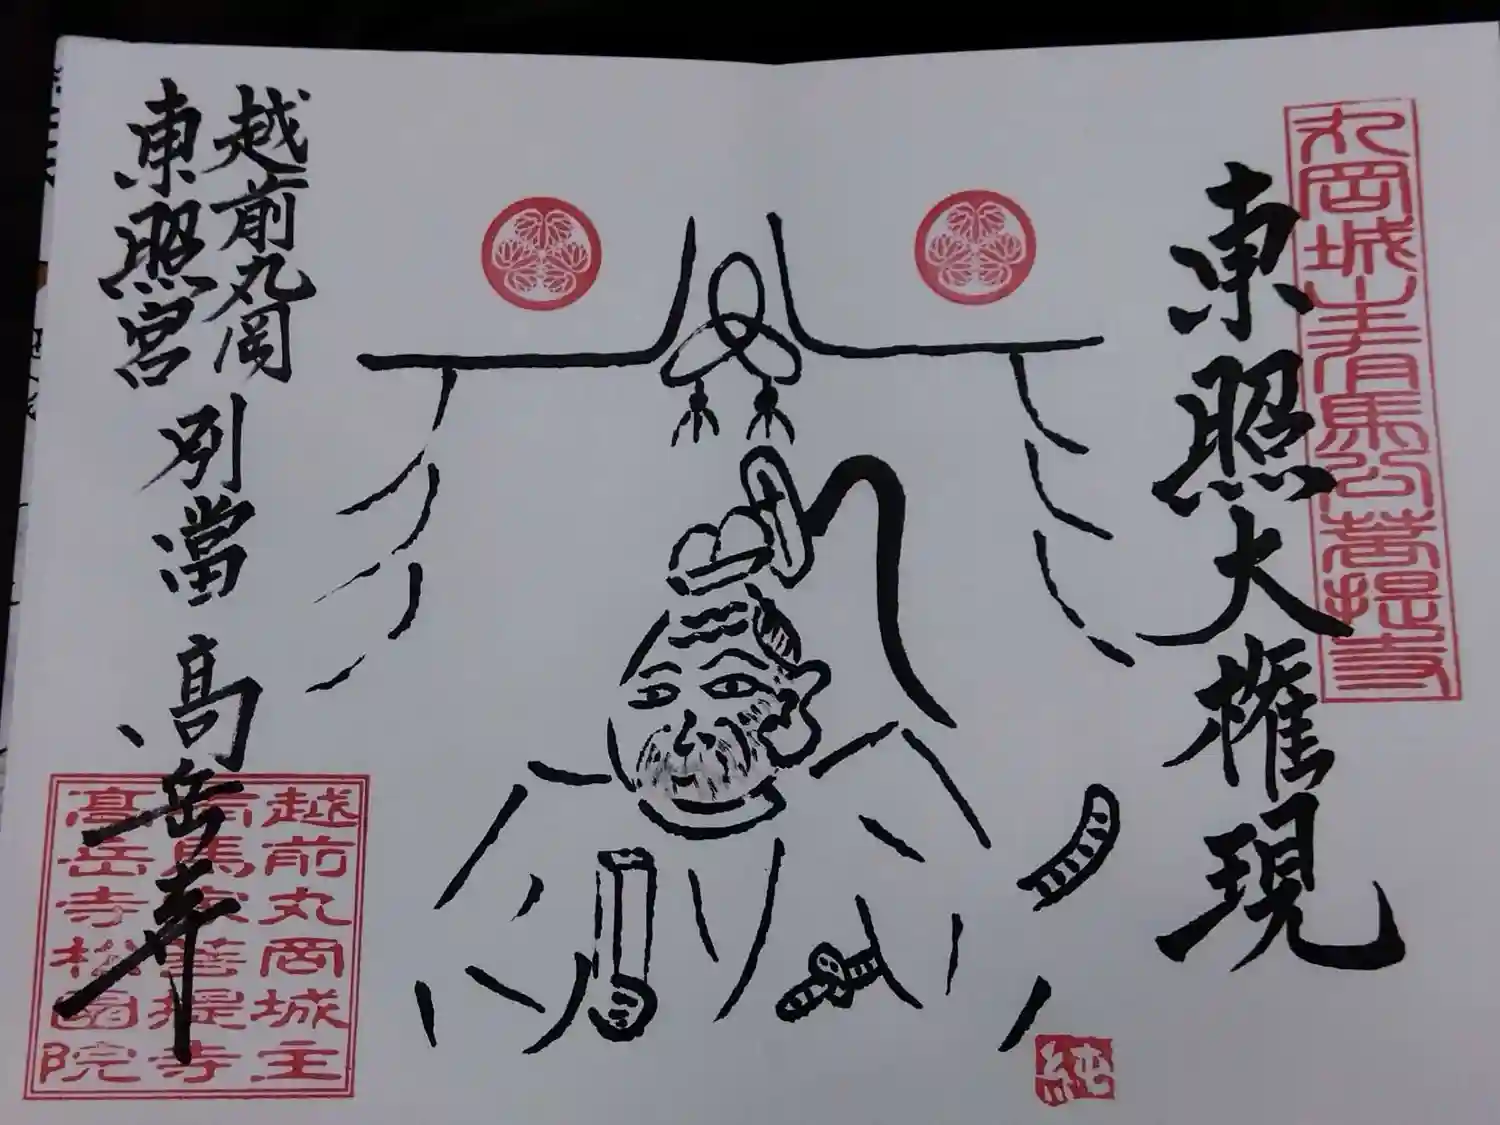 丸岡城主有馬公菩提寺
東照大権現
純
越前丸岡
東照宮
別當
高岳寺
越前丸岡城主
有馬家菩提寺
高岳寺松園院